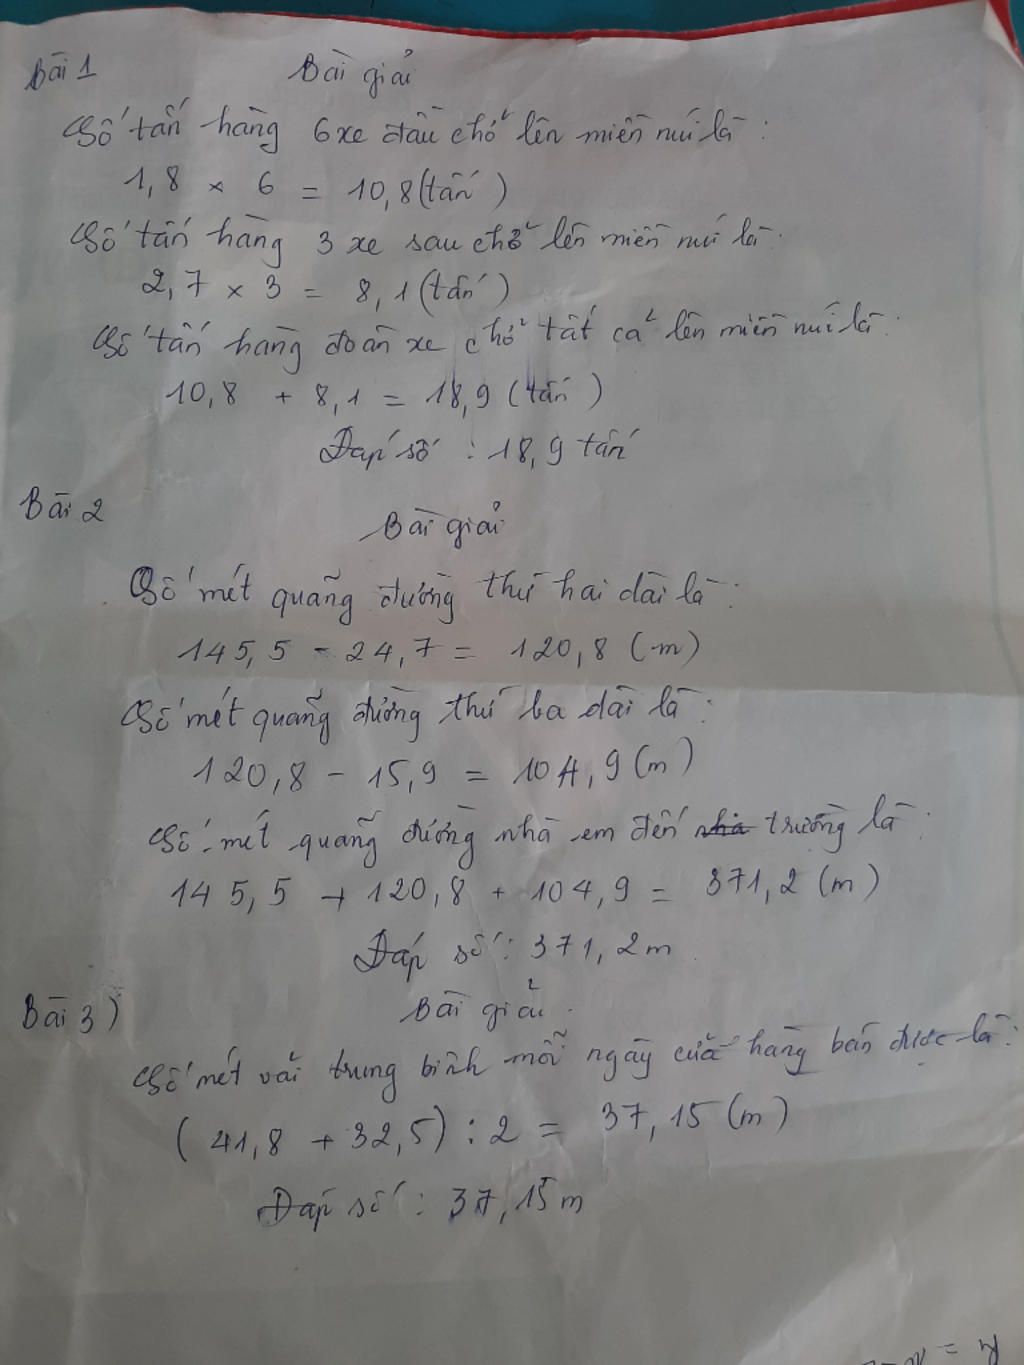 Bài 1
Bài giải
Số tấn hàng 6 xe đầu chở lên miền núi là :
1,8 × 6 = 10,8 (tấn)
Số tấn hàng 3 xe sau chở lên miền núi là :
2,7 × 3 = 8,1 (tấn)
Số tấn hàng đoàn xe chở tất cả lên miền núi là :
10,8 + 8,1 = 18,9 (tấn)
Đáp số : 18,9 tấn
Bài 2
Bài giải
Số mét quãng đường thứ hai dài là :
145,5 - 24,7 = 120,8 (m)
Số mét quãng đường thứ ba dài là :
120,8 - 15,9 = 104,9 (m)
Số mét quãng đường nhà em đến trường là :
145,5 + 120,8 + 104,9 = 371,2 (m)
Đáp số : 371,2m
Bài 3)
Bài giải
Số mét vải trung bình mỗi ngày cửa hàng bán được là :
(41,8 + 32,5) : 2 = 37,15 (m)
Đáp số : 37,15m